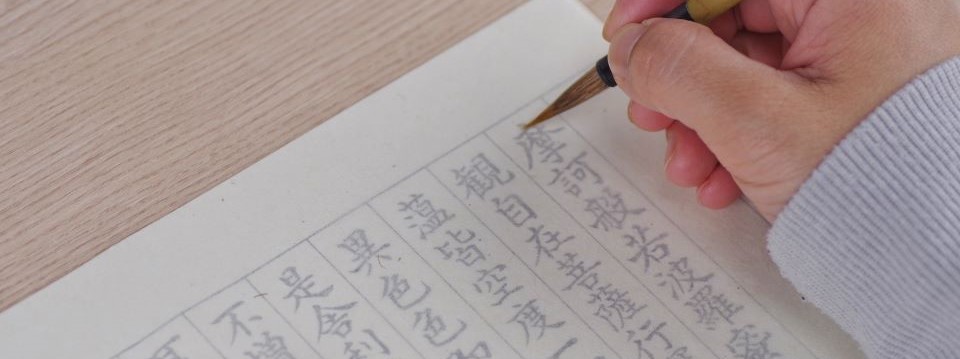 摩訶般若波羅蜜
観自在菩薩行
蘊皆空度一
異色色
是舎利
不増